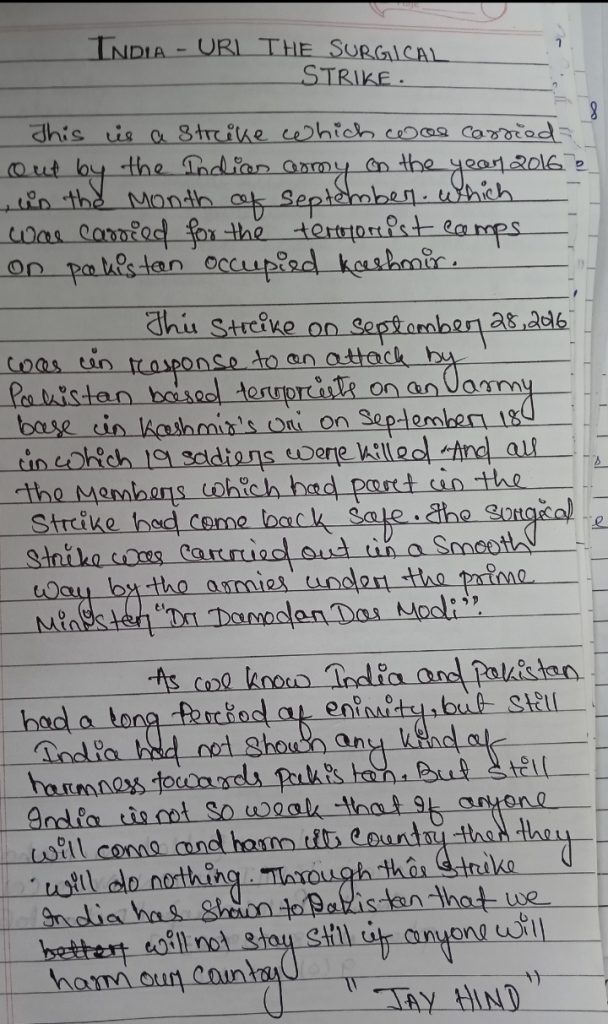 INDIA - URI THE SURGICAL
STRIKE.
This is a strike which was carried
out by the Indian army on the year 2016
, in the Month of September. which
was carried for the terrorist camps
on pakistan occupied kashmir.
This strike on september 28, 2016
was in response to an attack by
Pakistan based terrorists on an army
base in Kashmir's Uri on September 18
in which 19 sadiers were killed And all
the Members which had part in the
Strike had come back safe. The surgical
strike was carried out in a smooth
way by the armies under the prime
Minister "Dr Damodar Das Modi".
As we know India and Pakistan
had a long period of enimity, but still
India had not shown any kind of
harmness towards pakistan. But still
India is not so weak that if anyone
will come and harm its country then they
will do nothing. Through this strike
India has shown to Pakistan that we
will not stay still if anyone will
harm our country
"JAY HIND"